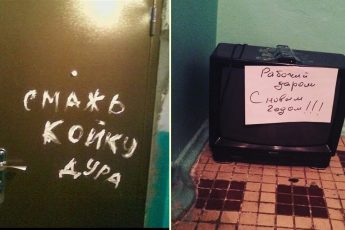 СМАЖЬ
КОЙКУ
ДУРА
Рабочий
даром
С новым
годом!!!